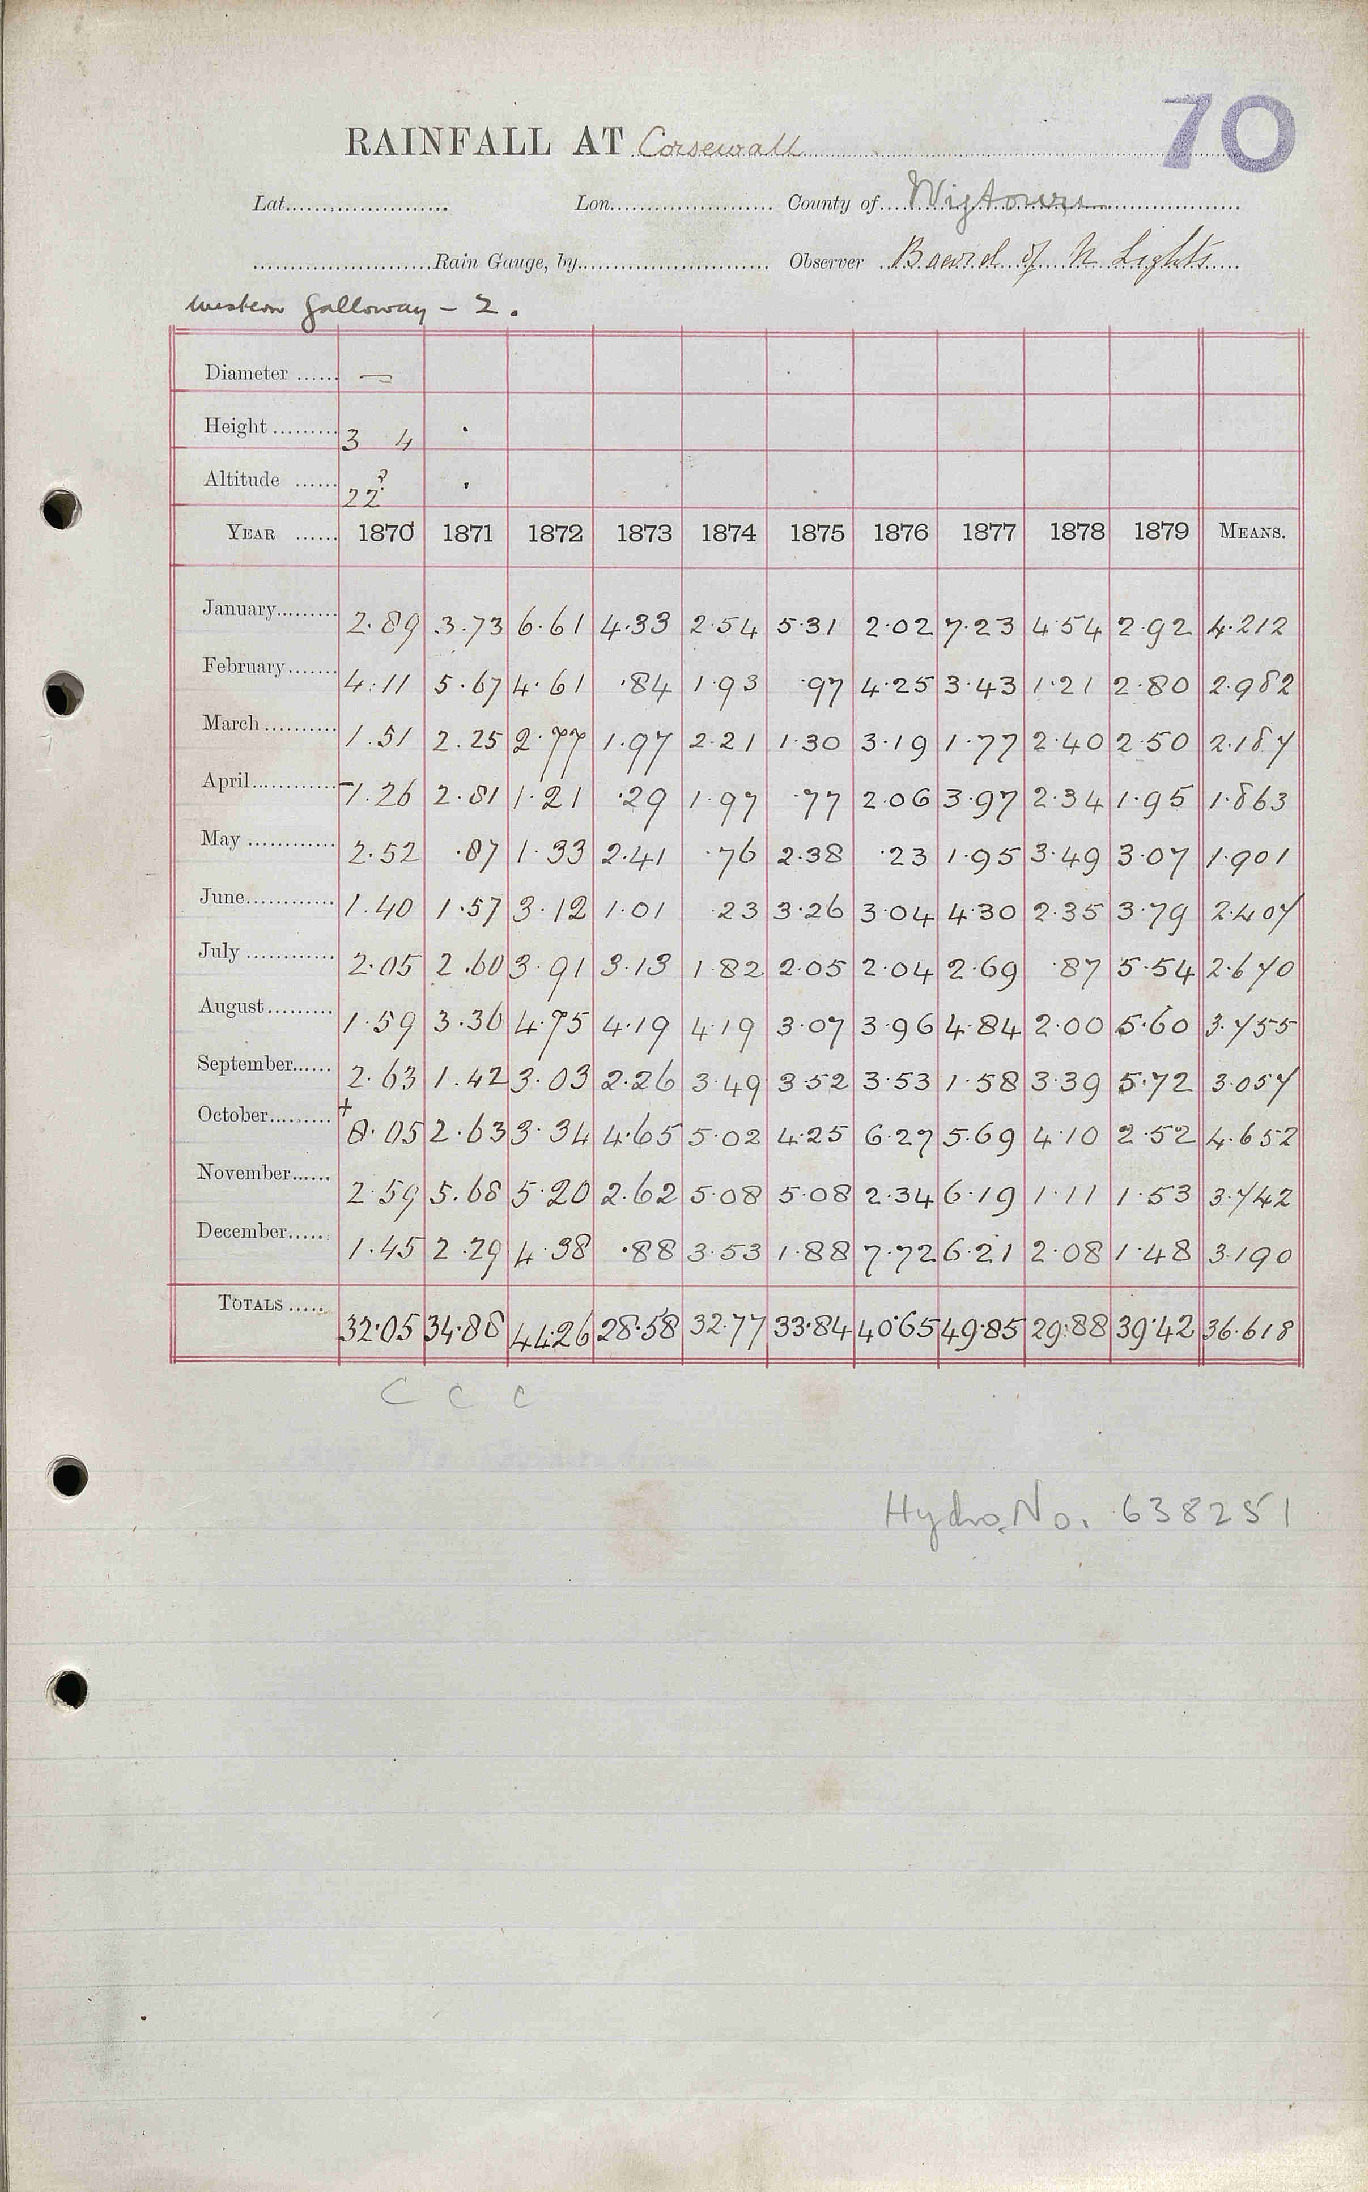 70
RAINFALL AT Corsewall
Lat. Lon. County of Wigtown
Rain Gauge, by Observer Board of N Lights
Western Galloway – 2.
Diameter —
Height 3 4 .
Altitude 22 ? .
YEAR 1870 1871 1872 1873 1874 1875 1876 1877 1878 1879 MEANS.
January 2.89 3.73 6.61 4.33 2.54 5.31 2.02 7.23 4.54 2.92 4.212
February 4.11 5.67 4.61 .84 1.93 .97 4.25 3.43 1.21 2.80 2.982
March 1.51 2.25 2.77 1.97 2.21 1.30 3.19 1.77 2.40 2.50 2.187
April -1.26 2.81 1.21 .29 1.97 .77 2.06 3.97 2.34 1.95 1.863
May 2.52 .87 1.33 2.41 .76 2.38 .23 1.95 3.49 3.07 1.901
June 1.40 1.57 3.12 1.01 .23 3.26 3.04 4.30 2.35 3.79 2.407
July 2.05 2.60 3.91 3.13 1.82 2.05 2.04 2.69 .87 5.54 2.670
August 1.59 3.36 4.75 4.19 4.19 3.07 3.96 4.84 2.00 5.60 3.755
September 2.63 1.42 3.03 2.26 3.49 3.52 3.53 1.58 3.39 5.72 3.057
October +8.05 2.63 3.34 4.65 5.02 4.25 6.27 5.69 4.10 2.52 4.652
November 2.59 5.68 5.20 2.62 5.08 5.08 2.34 6.19 1.11 1.53 3.742
December 1.45 2.29 4.38 .88 3.53 1.88 7.72 6.21 2.08 1.48 3.190
TOTALS 32.05 34.88 44.26 28.58 32.77 33.84 40.65 49.85 29.88 39.42 36.618
C C C
Hydro. No. 638251